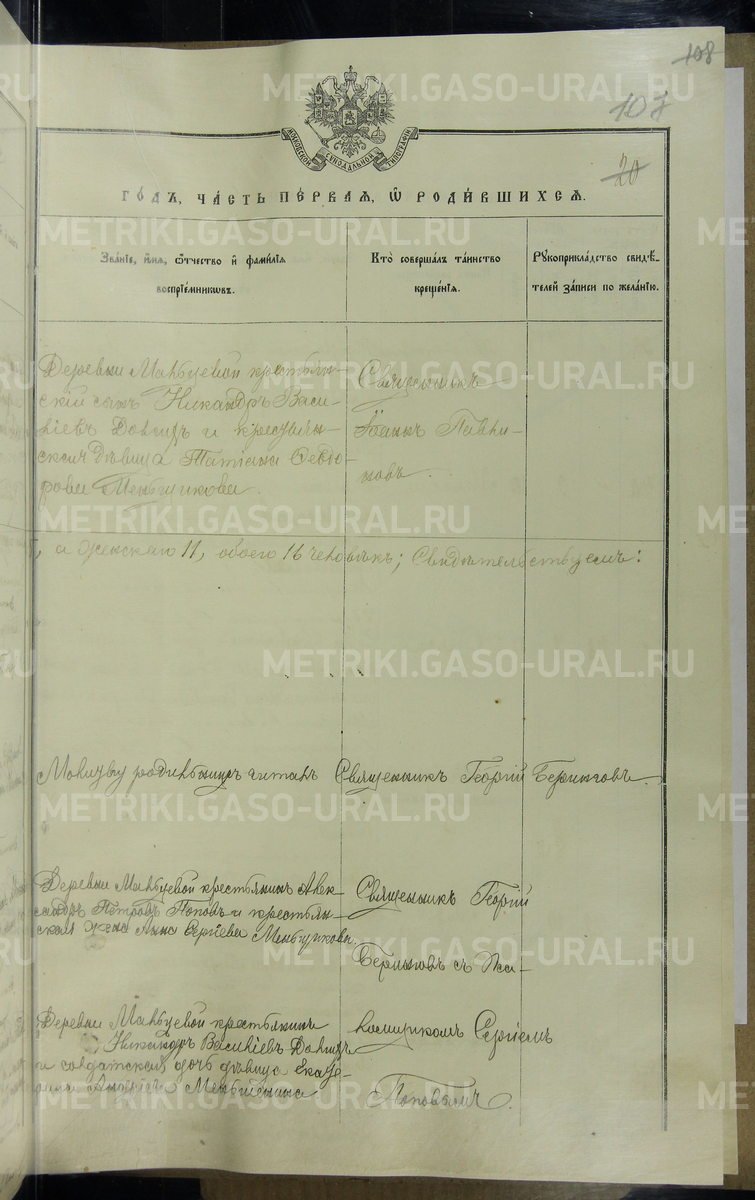 108
107
20
МОСКОВСКОЙ СИНОДАЛЬНОЙ ТИПОГРАФІИ
ГОДЪ, ЧАСТЬ ПЕРВАЯ, Ѡ РОДИВШИХСЯ.
Званіе, имя, ѿчество и фамилія
воспріемникѡвъ.
Кто совершалъ таинство
крещенія.
Рꙋкоприкладство свидѣ-
телей записи по желанію.
Деревни Мальцевой крестьян-
скій сынъ Никандръ Васи-
ліевъ и крестьян-
ская дѣвица Татіана Ѳеодо-
рова Меньщикова.
Священникъ
Іоаннъ
новъ.
а женскаго 11, обоего 16 человѣкъ; Свидѣтельствуемъ:
Молитву родильницѣ читалъ Священникъ Георгій
Деревни Мальцевой крестьянинъ Алек-
сандръ Петровъ Поповъ и крестьян-
ская жена Анна Сергіева Меньщикова.
Священникъ Георгій
съ Пса-
Деревни Мальцевой крестьянинъ
Никандръ Василіевъ
и солдатская дочь дѣвица Екате-
рина
ломщикомъ Сергіемъ
Поповымъ.
METRIKI.GASO-URAL.RU